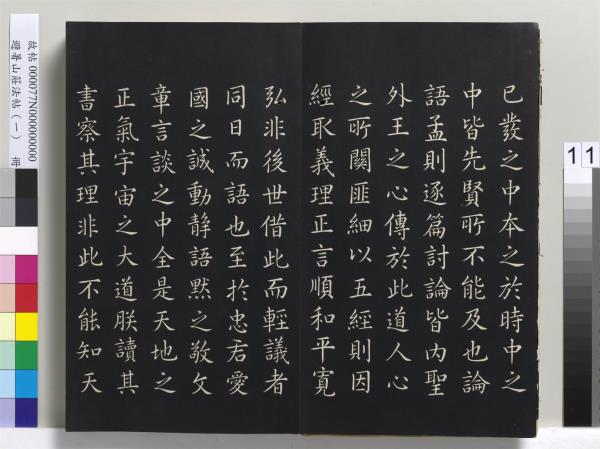 已發之中本之於時中之
中皆先賢所不能及也論
語孟則逐篇討論皆內聖
外王之心傳於此道人心
之所關匪細以五經則因
經取義理正言順和平寬
弘非後世借此而輕議者
同日而語也至於忠君愛
國之誠動静語默之敬文
章言談之中全是天地之
正氣宇宙之大道朕讀其
書察其理非此不能知天
故帖000077N000000000
避暑山莊法帖(一) 冊
11